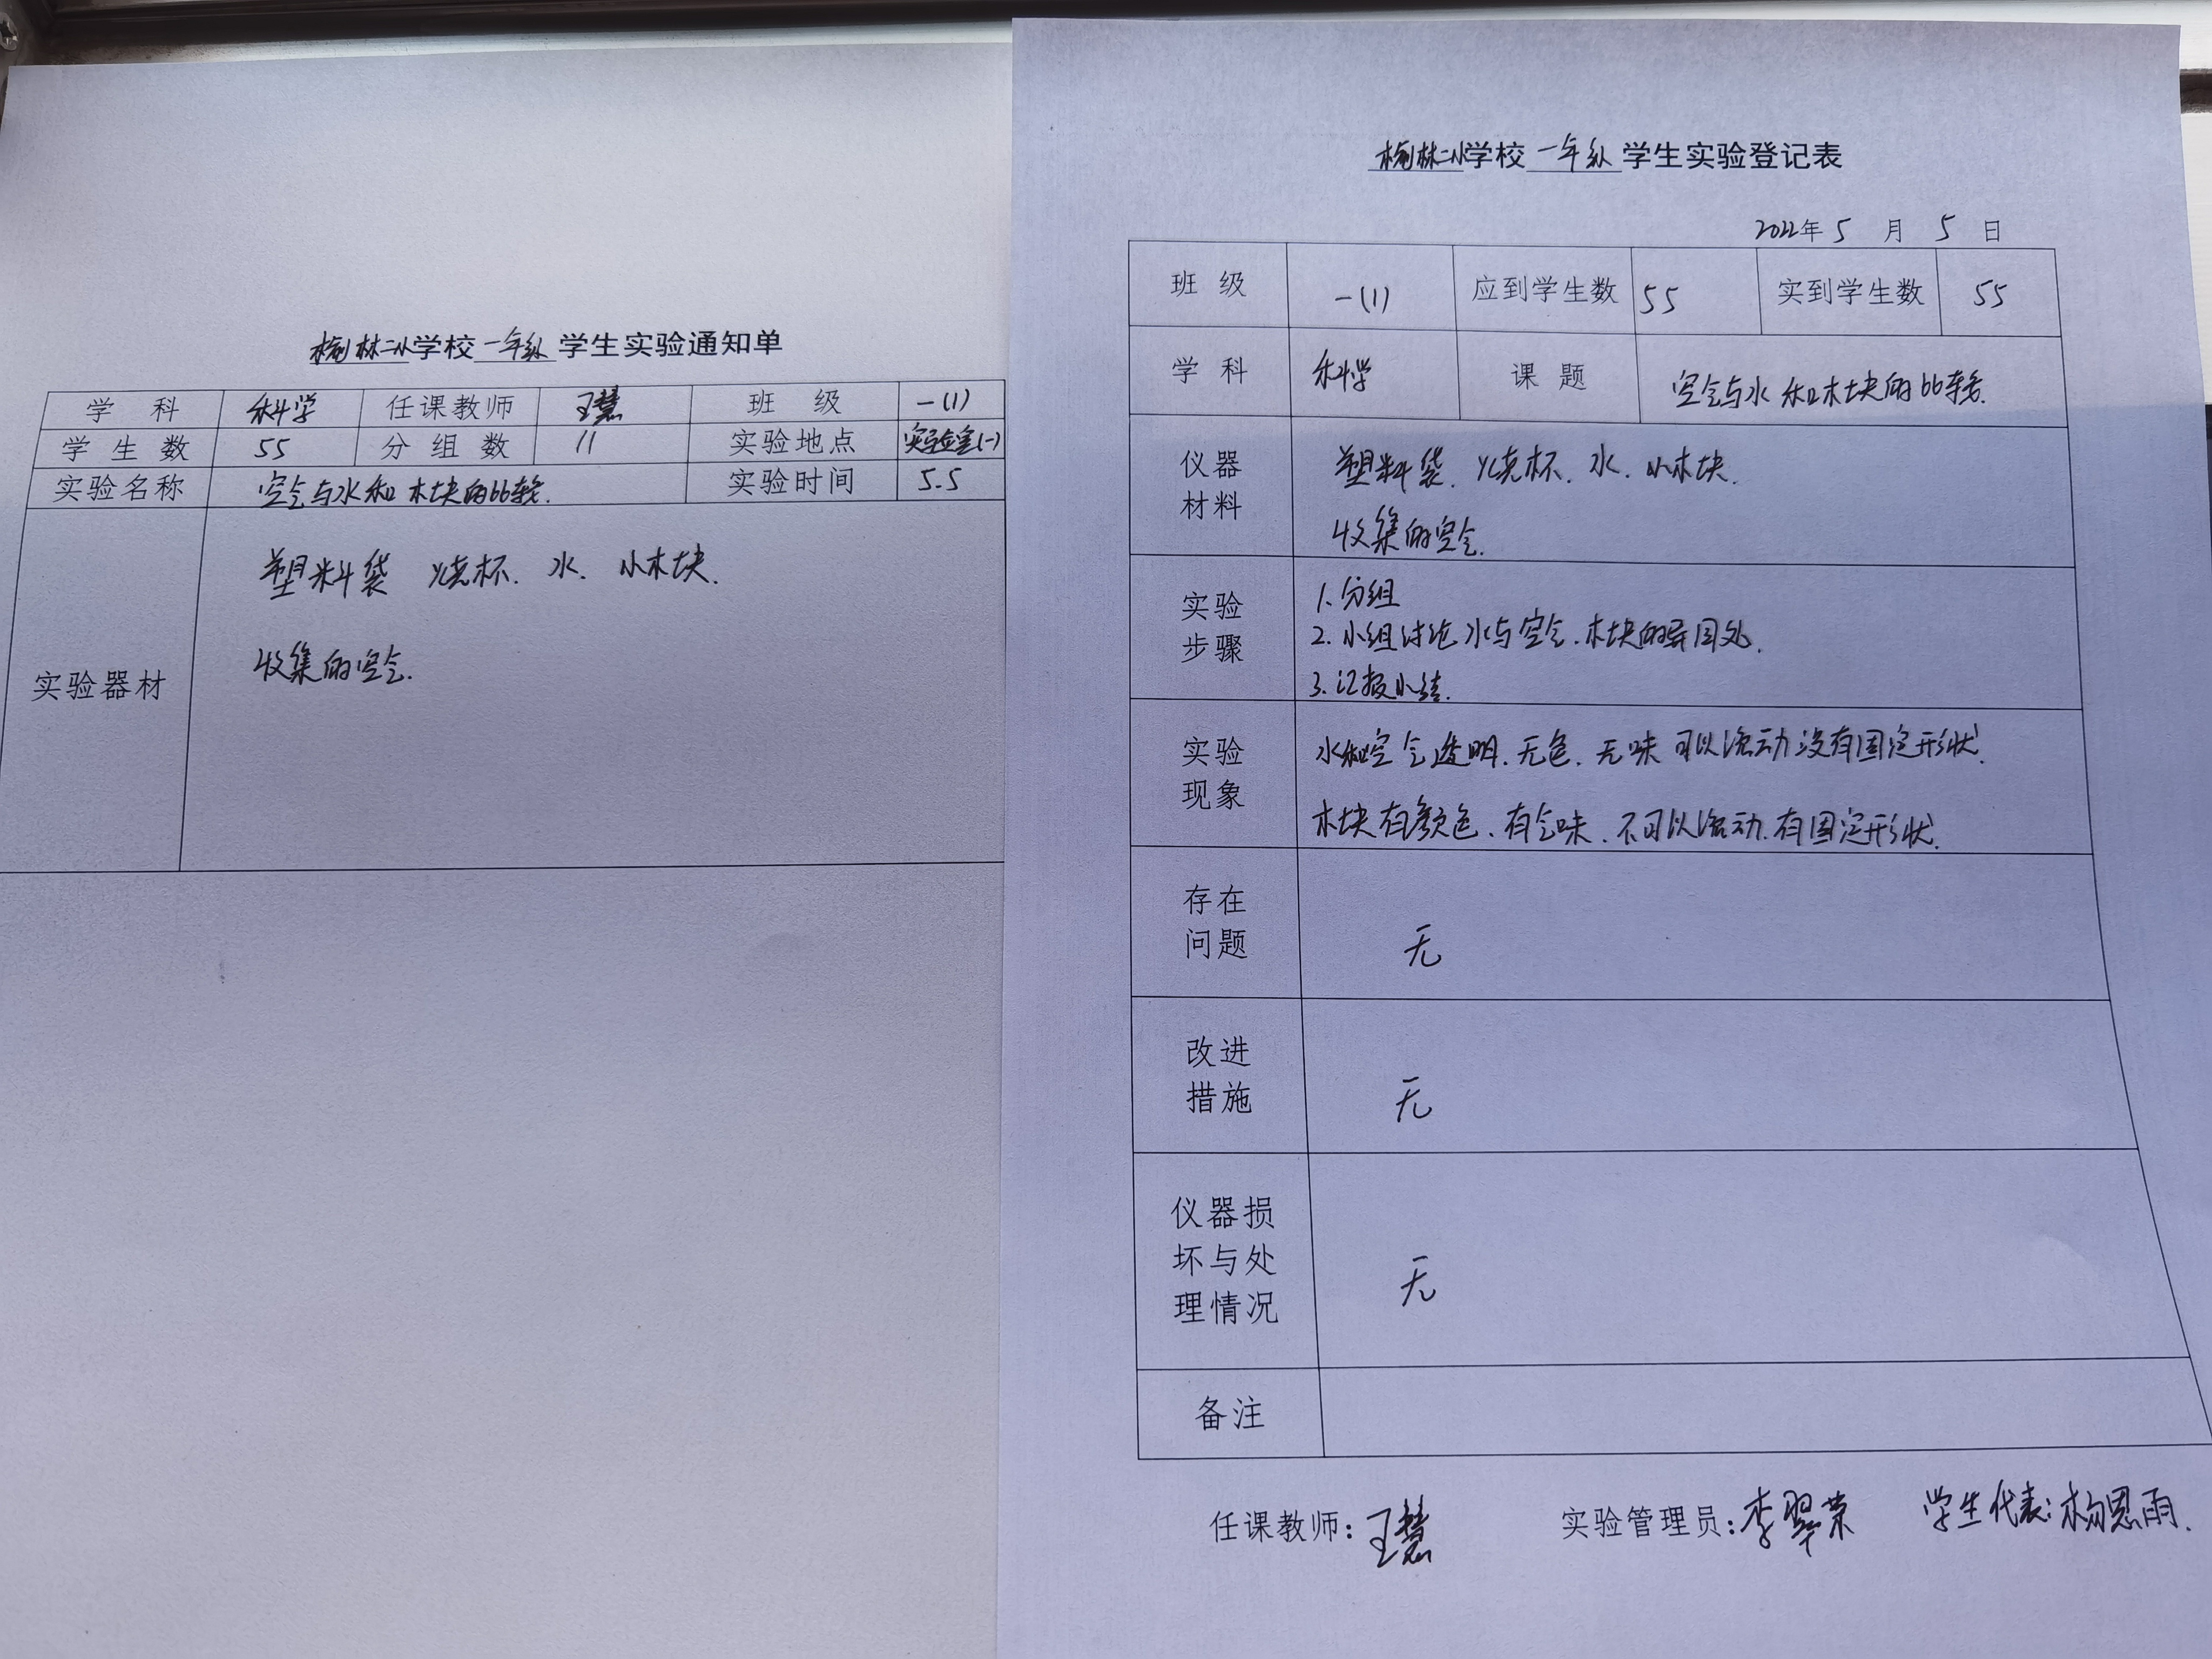 榆林二小学校一年级学生实验通知单
学 科 科学 任课教师 王慧 班 级 一(1)
学 生 数 55 分 组 数 11 实验地点 实验室(一)
实验名称 空气与水和木块的比较. 实验时间 5.5
实验器材
塑料袋 烧杯. 水. 小木块.
收集的空气.
榆林二小学校一年级学生实验登记表
2022年 5 月 5 日
班 级 一(1) 应到学生数 55 实到学生数 55
学 科 科学 课 题 空气与水和木块的比较.
仪器材料
塑料袋. 烧杯. 水. 小木块.
收集的空气.
实验步骤
1. 分组
2. 小组讨论水与空气.木块的异同处.
3. 汇报小结.
实验现象
水和空气透明.无色.无味 可以流动没有固定形状.
木块有颜色.有气味.不可以流动.有固定形状.
存在问题 无
改进措施 无
仪器损坏与处理情况 无
备注
任课教师:王慧 实验管理员:李翠荣 学生代表:杨恩雨.